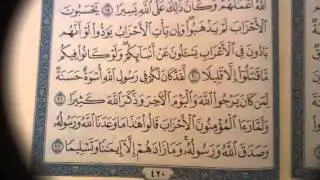 اللَّهُ أَعْمَالَهُمْ وَكَانَ ذَٰلِكَ عَلَى اللَّهِ يَسِيرًا ١٩ يَحْسَبُونَ
الْأَحْزَابَ لَمْ يَذْهَبُوا وَإِن يَأْتِ الْأَحْزَابُ يَوَدُّوا لَوْ أَنَّهُم
بَادُونَ فِي الْأَعْرَابِ يَسْأَلُونَ عَنْ أَنبَائِكُمْ وَلَوْ كَانُوا فِيكُم
مَّا قَاتَلُوا إِلَّا قَلِيلًا ٢٠ لَّقَدْ كَانَ لَكُمْ فِي رَسُولِ اللَّهِ أُسْوَةٌ حَسَنَةٌ
لِّمَن كَانَ يَرْجُو اللَّهَ وَالْيَوْمَ الْآخِرَ وَذَكَرَ اللَّهَ كَثِيرًا ٢١
وَلَمَّا رَأَى الْمُؤْمِنُونَ الْأَحْزَابَ قَالُوا هَٰذَا مَا وَعَدَنَا اللَّهُ وَرَسُولُهُ
وَصَدَقَ اللَّهُ وَرَسُولُهُ وَمَا زَادَهُمْ إِلَّا إِيمَانًا وَتَسْلِيمًا ٢٢
٤٢٠